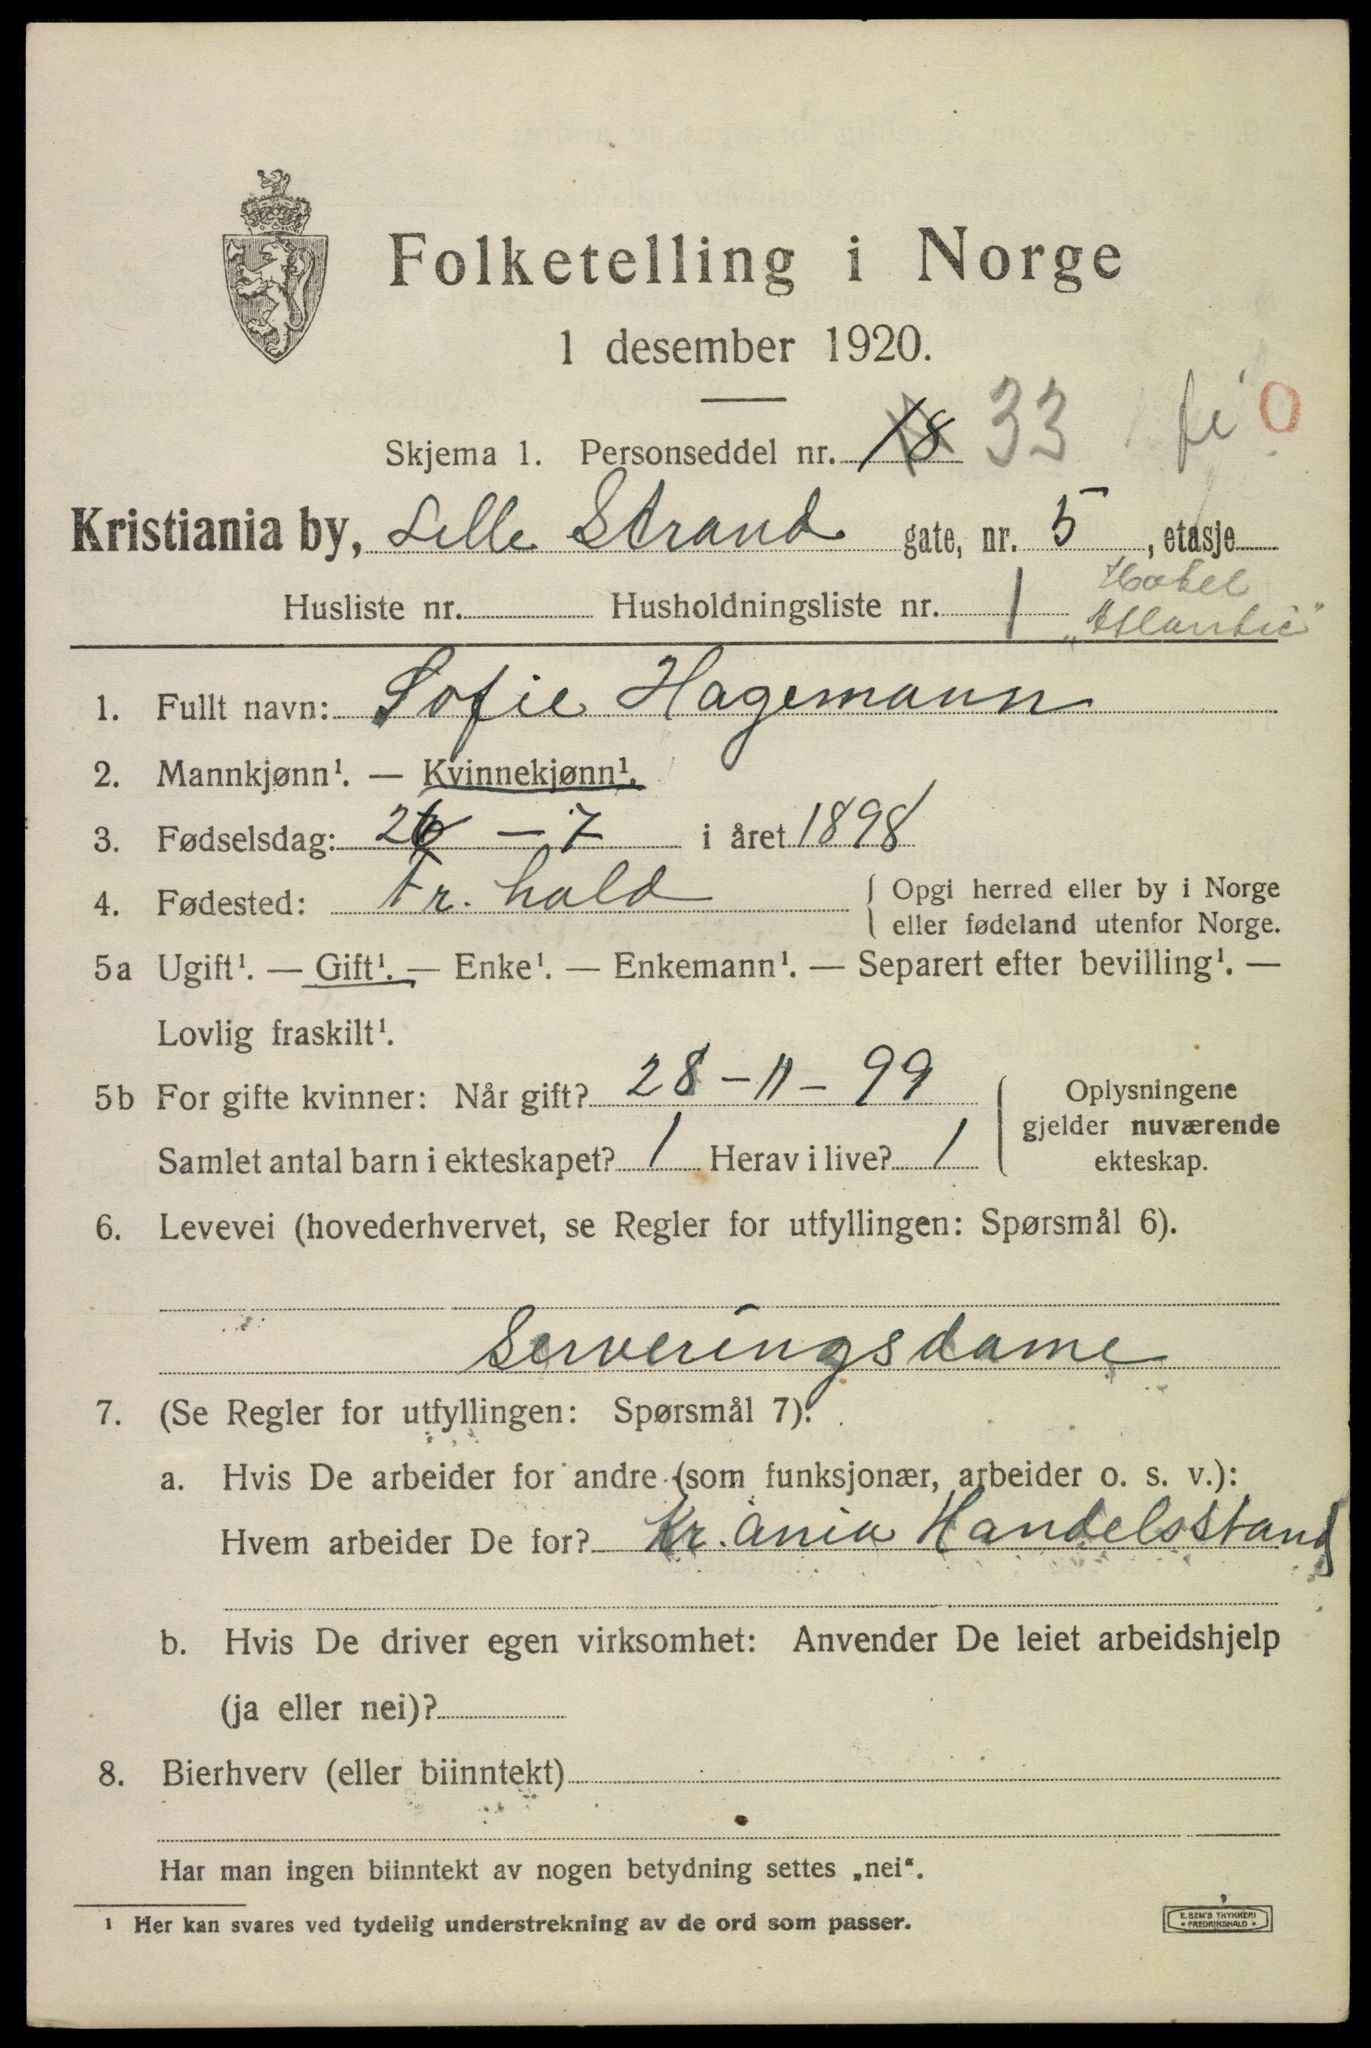 Folketelling i Norge
1 desember 1920.
Skjema 1. Personseddel nr. 18 33
0
Kristiania by, Lille Strand gate, nr. 5, etasje
Husliste nr. Husholdningsliste nr. 1 Hotel
"Atlantic"
1. Fullt navn: Sofie Hagemann
2. Mannkjønn¹. — Kvinnekjønn¹.
3. Fødselsdag: 26 - 7 i året 1898
4. Fødested: Fr. hald { Opgi herred eller by i Norge
eller fødeland utenfor Norge.
5a Ugift¹. — Gift¹. — Enke¹. — Enkemann¹. — Separert efter bevilling¹. —
Lovlig fraskilt¹.
5b For gifte kvinner: Når gift? 28 - 11 - 99 { Oplysningene
gjelder nuværende
ekteskap.
Samlet antal barn i ekteskapet? 1 Herav i live? 1
6. Levevei (hovederhvervet, se Regler for utfyllingen: Spørsmål 6).
Serveringsdame
7. (Se Regler for utfyllingen: Spørsmål 7):
a. Hvis De arbeider for andre (som funksjonær, arbeider o. s. v.):
Hvem arbeider De for? Kr. ania Handelsstand
b. Hvis De driver egen virksomhet: Anvender De leiet arbeidshjelp
(ja eller nei)?
8. Bierhverv (eller biinntekt)
Har man ingen biinntekt av nogen betydning settes „nei“.
¹ Her kan svares ved tydelig understrekning av de ord som passer.
E. SEM'S TRYKKERI
• FREDRIKSHALD •